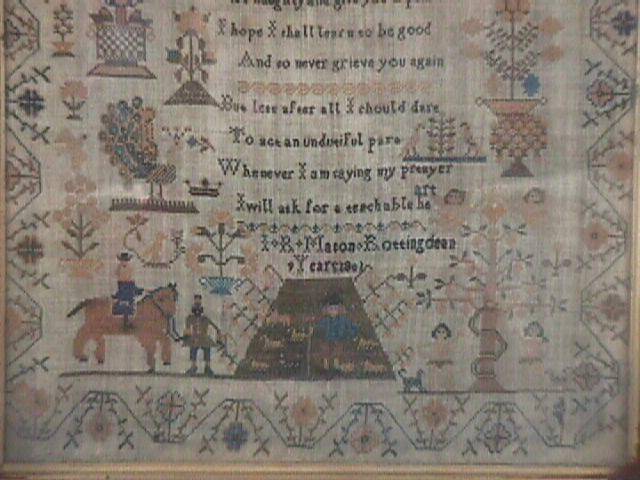 be naughty and give you pain
I hope I shall learn to be good
And so never grieve you again
But less after all I should dare
To act an undutiful part
Whenever I am saying my prayer
I will ask for a teachable heart
I R Mason Rottingdean
9 Years